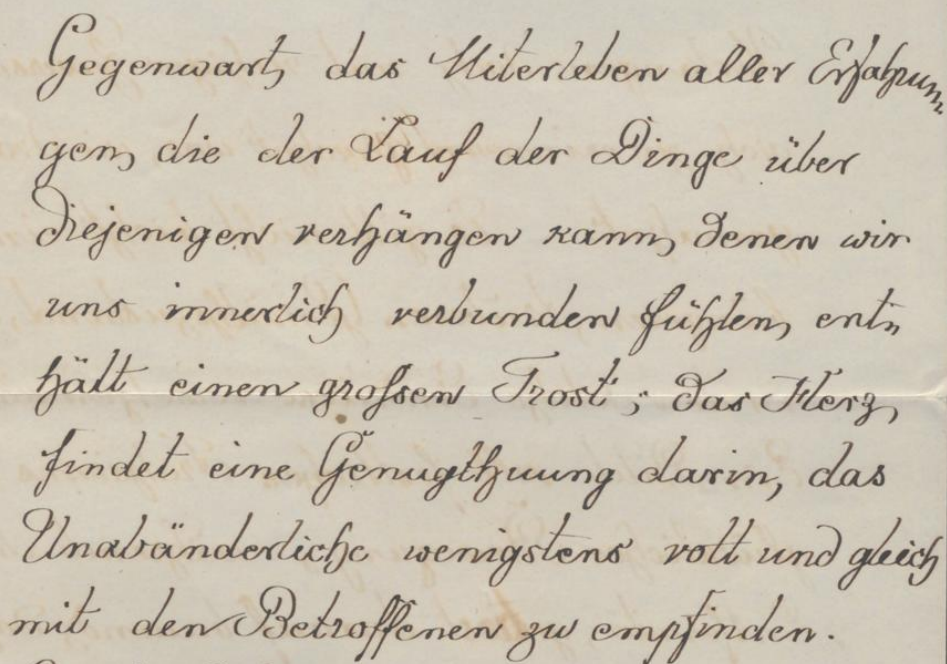 Gegenwart, das Miterleben aller Erfahrun-
gen, die der Lauf der Dinge über
diejenigen verhängen kann, denen wir
uns innerlich verbunden fühlen, ent-
hält einen grossen Trost; das Herz,
findet eine Genugthuung darin, das
Unabänderliche wenigstens voll und gleich
mit den Betroffenen zu empfinden.